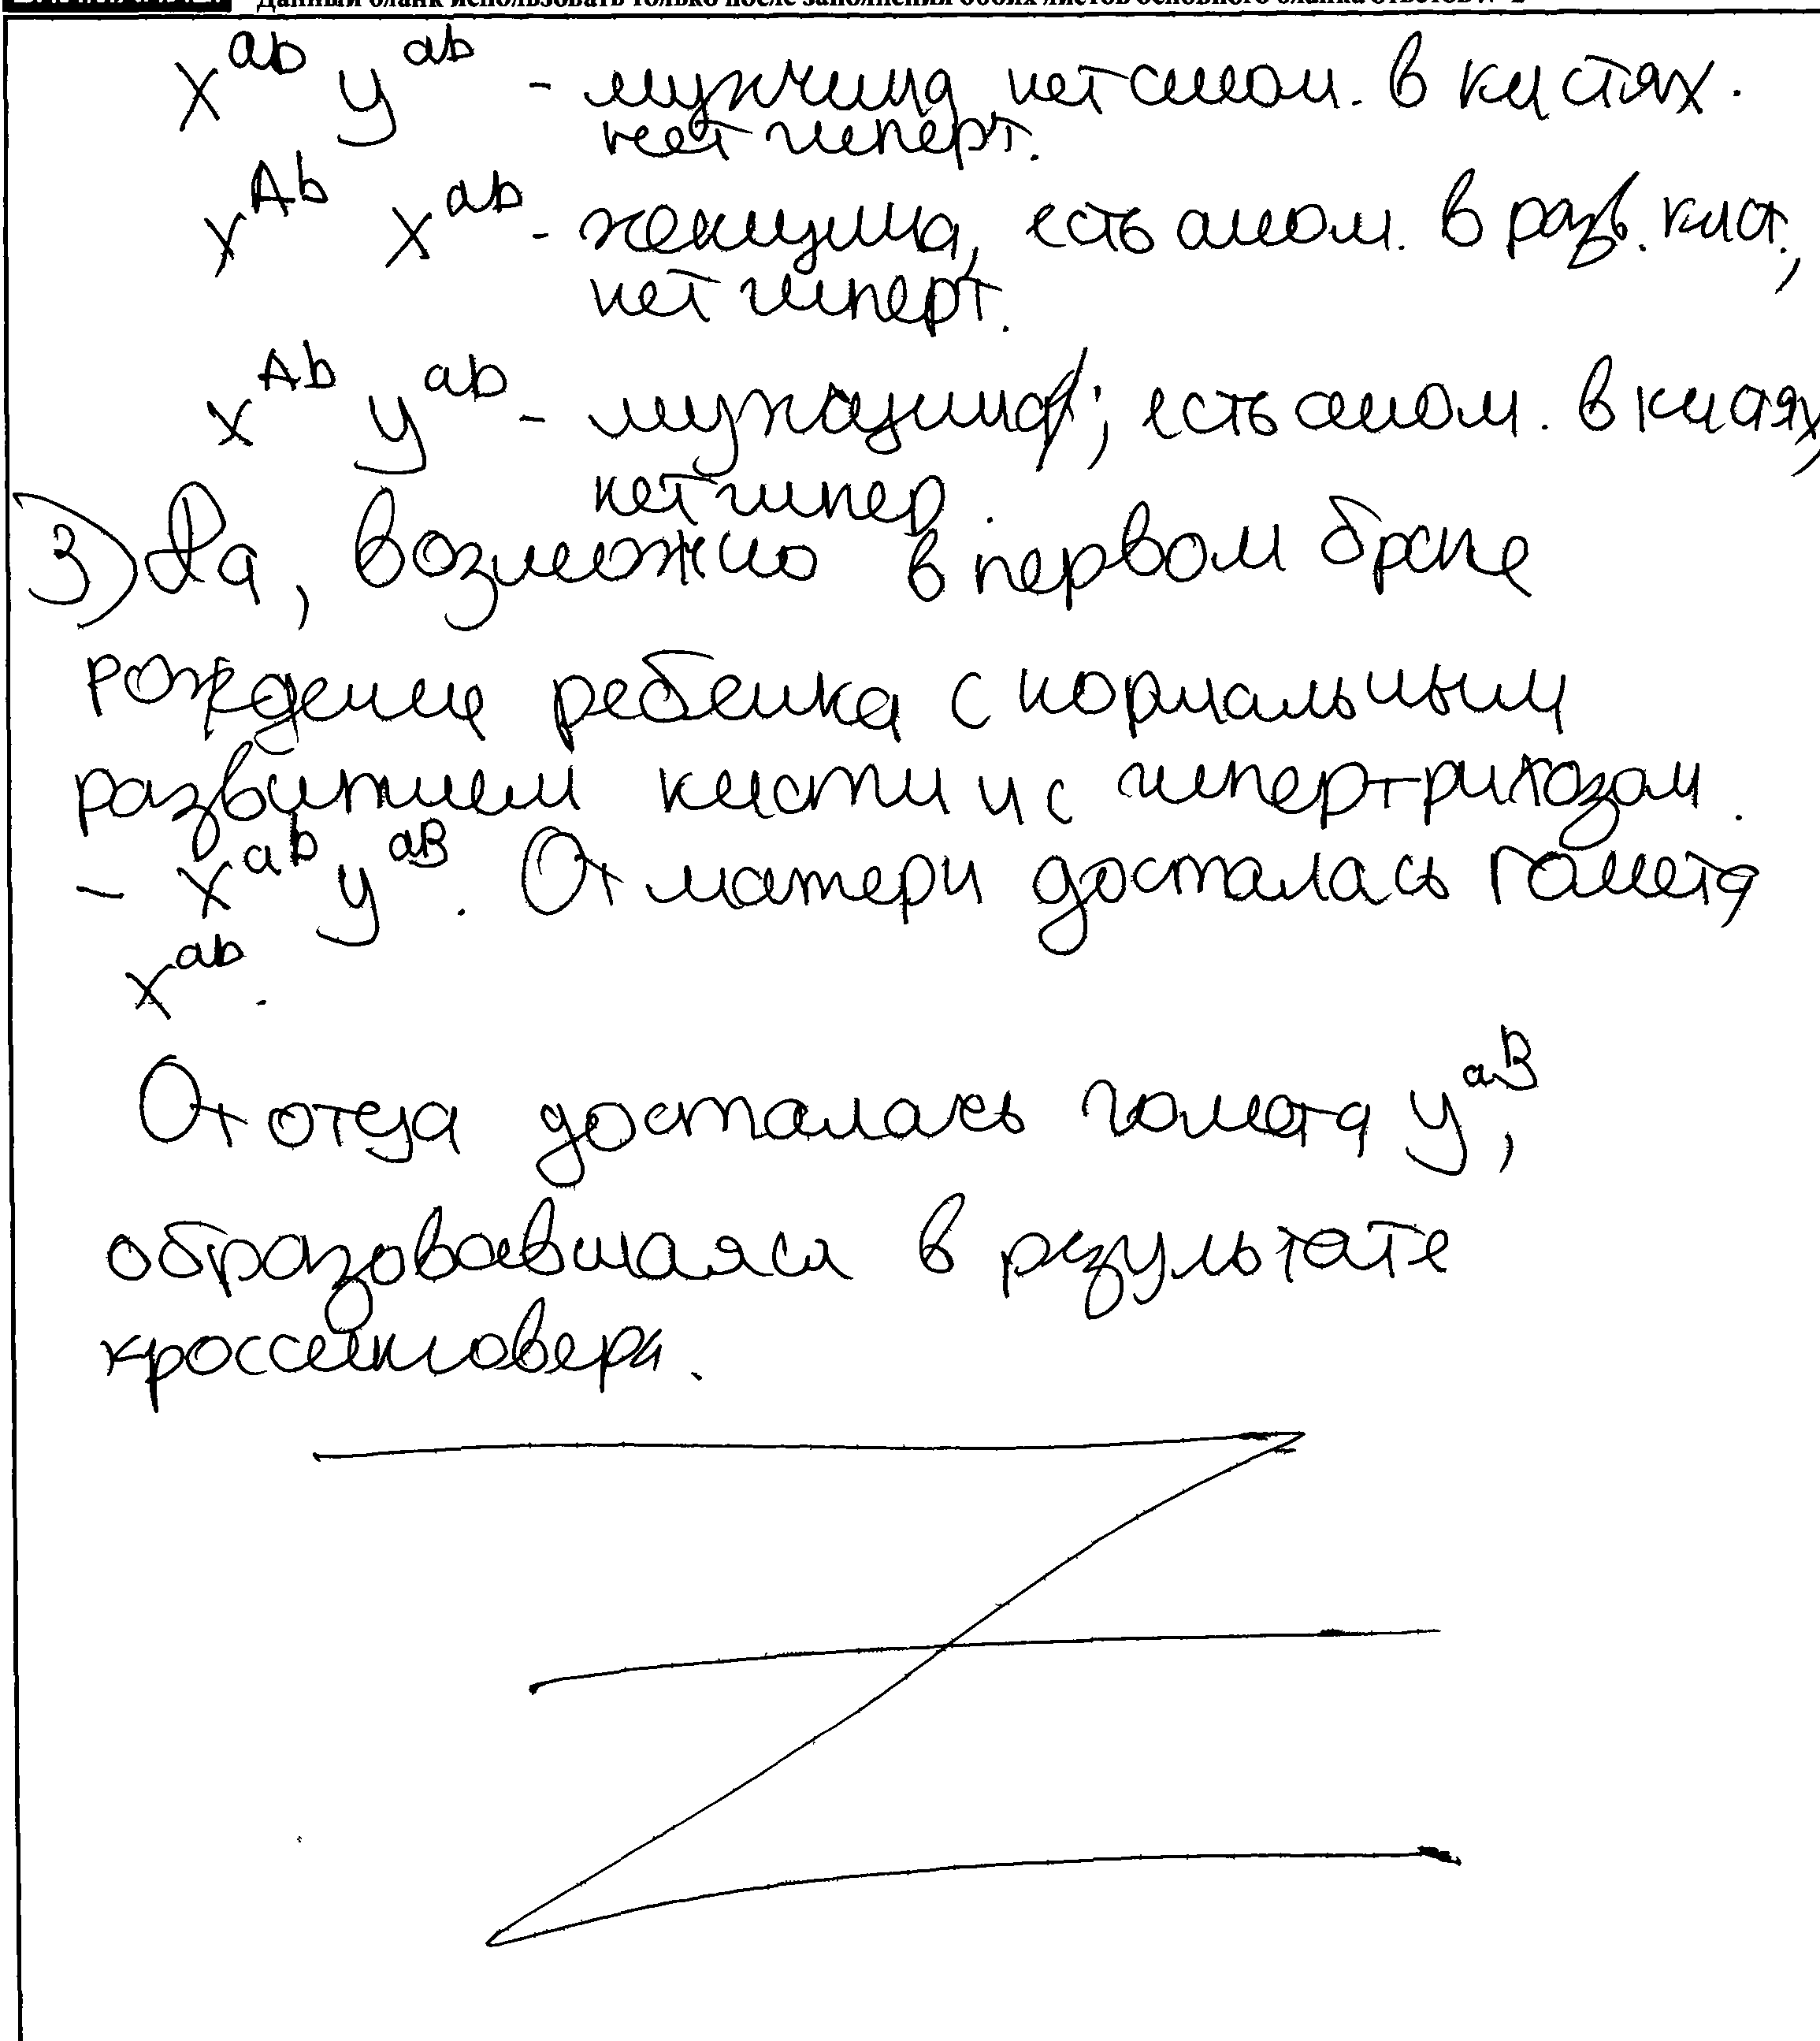 Данный бланк использовать только после заполнения обоих листов основного бланка ответов № 2
X^ab У^ab - мужчина, нет аном. в кистях.
нет гиперт.
X^Ab X^ab - женщина, есть аном. в разв. кист.,
нет гиперт.
X^Ab У^ab - мужчина; есть аном. в кистях,
нет гипер.
3) Да, возможно в первом браке
рождение ребенка с нормальным
развитием кисти и с гипертрихозом.
- X^ab У^aB. От матери досталась гамета
X^ab.
От отца досталась гамета У^aB,
образовавшаяся в результате
кроссинговера.